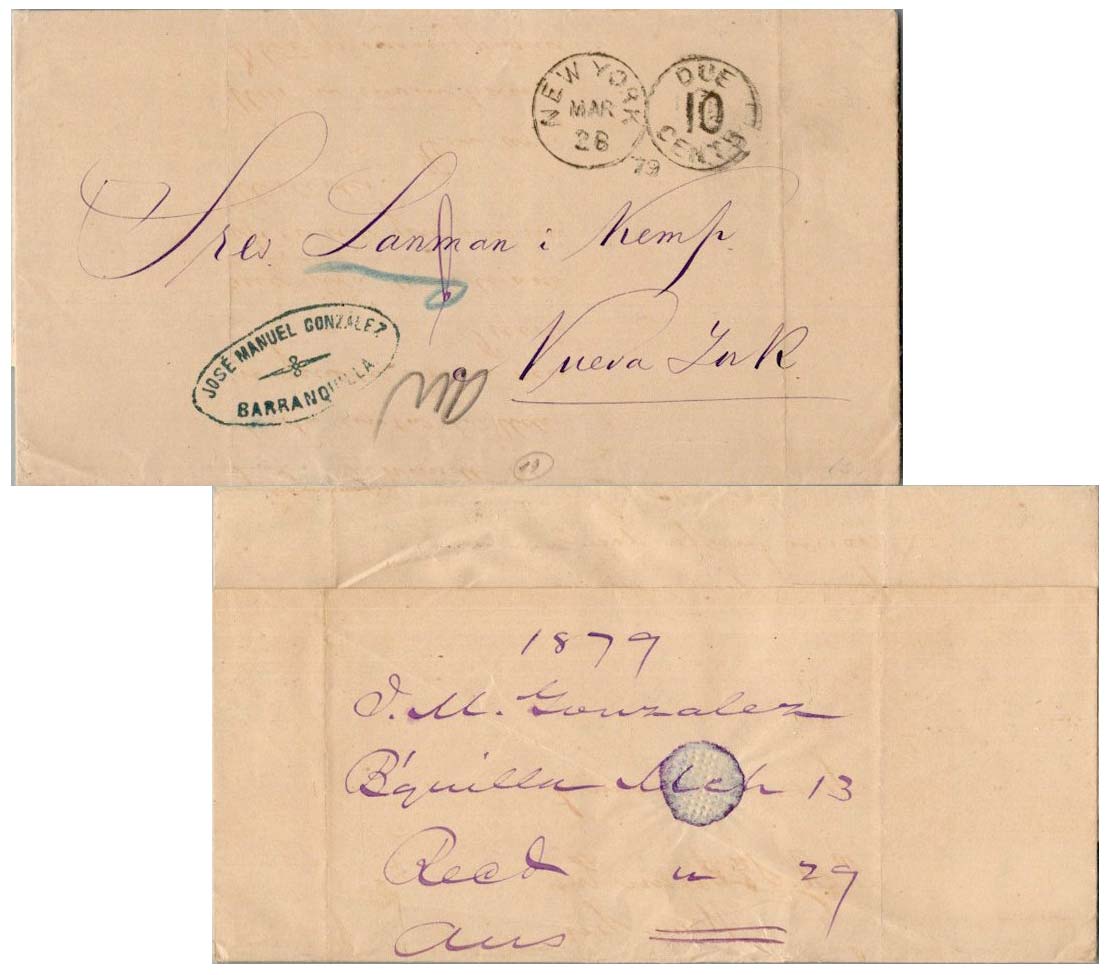 NEW YORK
MAR
28
79
DUE
10
CENTS
Sres. Lanman i Kemp.
Nueva York
JOSÉ MANUEL GONZALEZ
BARRANQUILLA
10
1879
J. M. Gonzalez
B'quilla Mch 13
Recd " 29
Ans